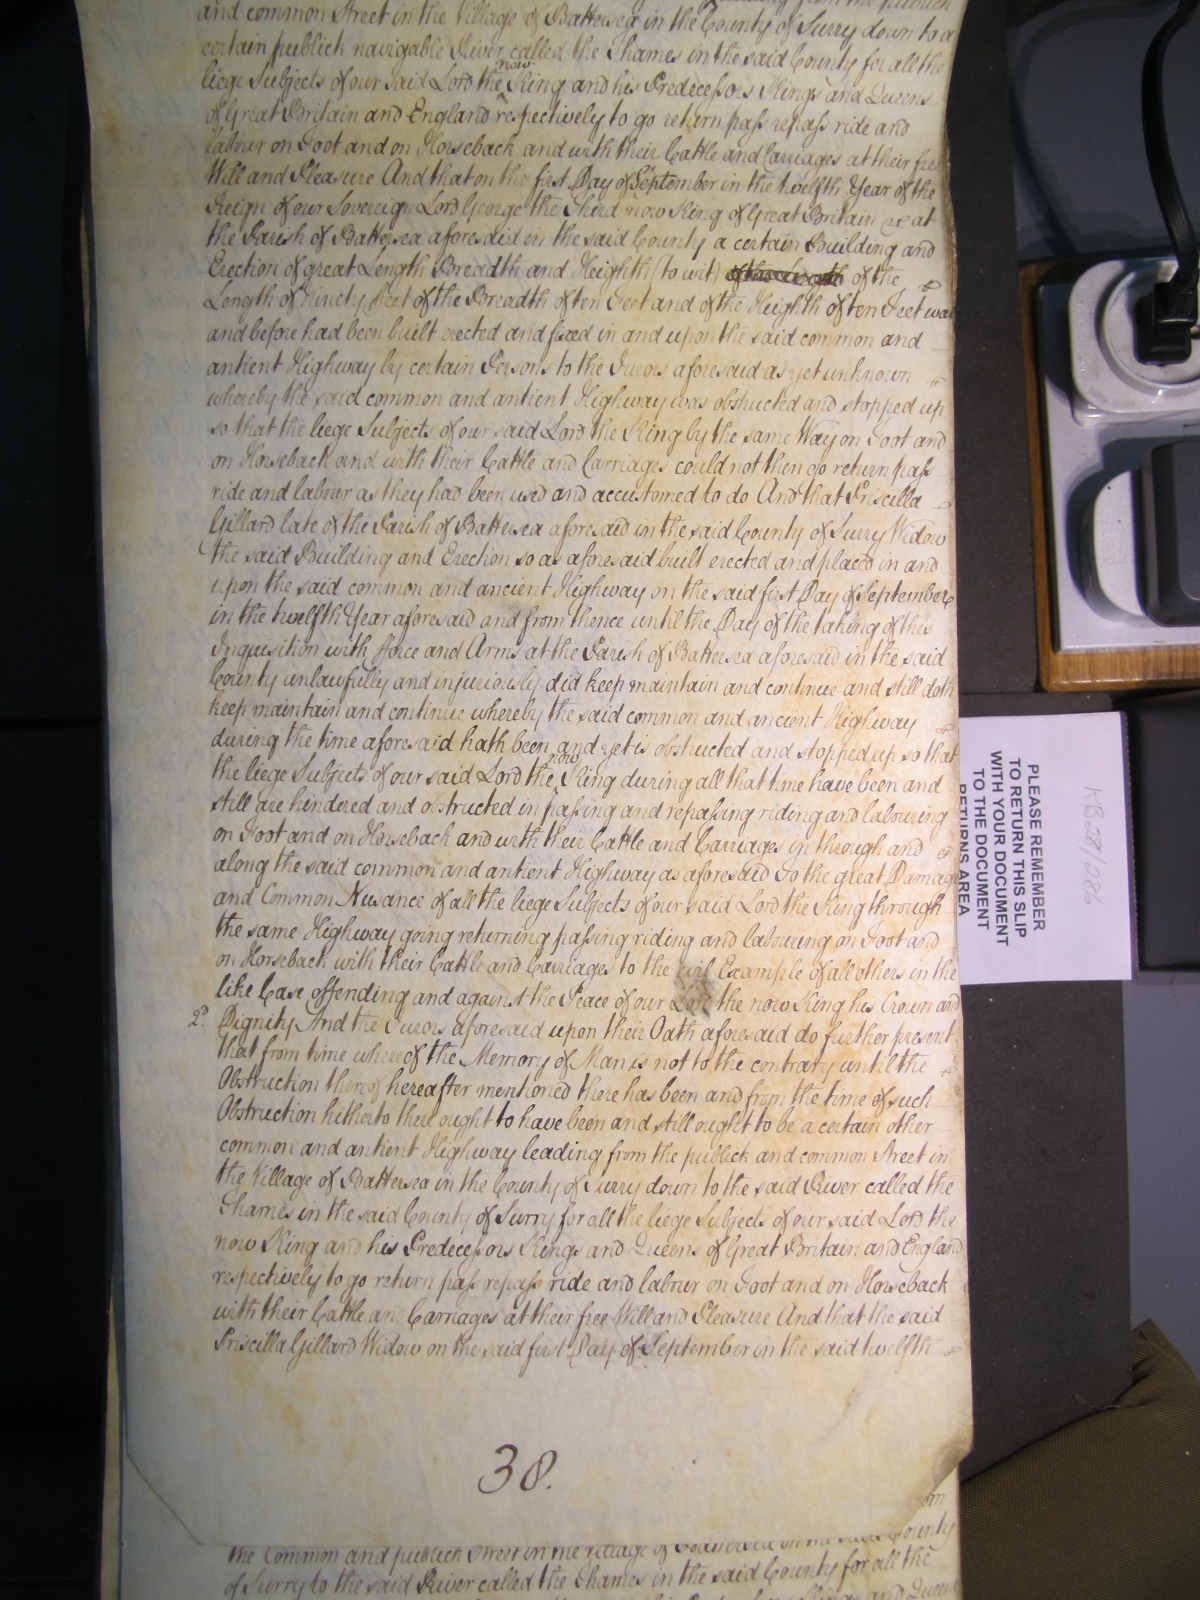 and common Street in the Village of Battersea in the County of Surry down to a
certain publick navigable River called the Thames in the said County for all the
liege Subjects of our said Lord the now King and his Predecessors Kings and Queens
of Great Britain and England respectively to go return pass repass ride and
labour on Foot and on Horseback and with their Cattle and Carriages at their free
Will and Pleasure And that on the first Day of September in the twelfth Year of the
Reign of our Sovereign Lord George the Third now King of Great Britain &c. at
the Parish of Battersea aforesaid in the said County a certain Building and
Erection of great Length Breadth and Heighth (to wit) of the
Length of Ninety Feet of the Breadth of ten Feet and of the Heighth of ten Feet was
and before had been built erected and fixed in and upon the said common and
antient Highway by certain Persons to the Jurors aforesaid as yet unknown
whereby the said common and antient Highway was obstructed and stopped up
so that the liege Subjects of our said Lord the King by the same Way on Foot and
on Horseback and with their Cattle and Carriages could not then go return pass
ride and labour as they had been used and accustomed to do And that Priscilla
Gillard late of the Parish of Battersea aforesaid in the said County of Surry Widow
the said Building and Erection so as aforesaid built erected and placed in and
upon the said common and ancient Highway on the said first Day of September
in the twelfth Year aforesaid and from thence until the Day of the taking of this
Inquisition with fforce and Arms at the Parish of Battersea aforesaid in the said
County unlawfully and injuriously did keep maintain and continue and still doth
keep maintain and continue whereby the said common and ancient Highway
during the time aforesaid hath been and yet is obstructed and stopped up so that
the liege Subjects of our said Lord the now King during all that time have been and
still are hindered and obstructed in passing and repassing riding and labouring
on Foot and on Horseback and with their Cattle and Carriages in through and
along the said common and antient Highway as aforesaid To the great Damage
and Common Nusance of all the liege Subjects of our said Lord the King through
the same Highway going returning passing riding and labouring on Foot and
on Horseback with their Cattle and Carriages to the evil Example of all others in the
like Case offending and against the Peace of our Lord the now King his Crown and
2d. Dignity And the Jurors aforesaid upon their Oath aforesaid do further present
that from time whereof the Memory of Man is not to the contrary until the
Obstruction thereof hereafter mentioned there has been and from the time of such
Obstruction hitherto there ought to have been and still ought to be a certain other
common and antient Highway leading from the publick and common Street in
the Village of Battersea in the County of Surry down to the said River called the
Thames in the said County of Surry for all the liege Subjects of our said Lord the
now King and his Predecessors Kings and Queens of Great Britain and England
respectively to go return pass repass ride and labour on Foot and on Horseback
with their Cattle and Carriages at their free Will and Pleasure And that the said
Priscilla Gillard Widow on the said first Day of September in the said twelfth
38.
the Common and publick Street in the Village of Battersea in the said County
of Surry to the said River called the Thames in the said County for all the
PLEASE REMEMBER
TO RETURN THIS SLIP
WITH YOUR DOCUMENT
TO THE DOCUMENT
RETURNS AREA
KB28/286